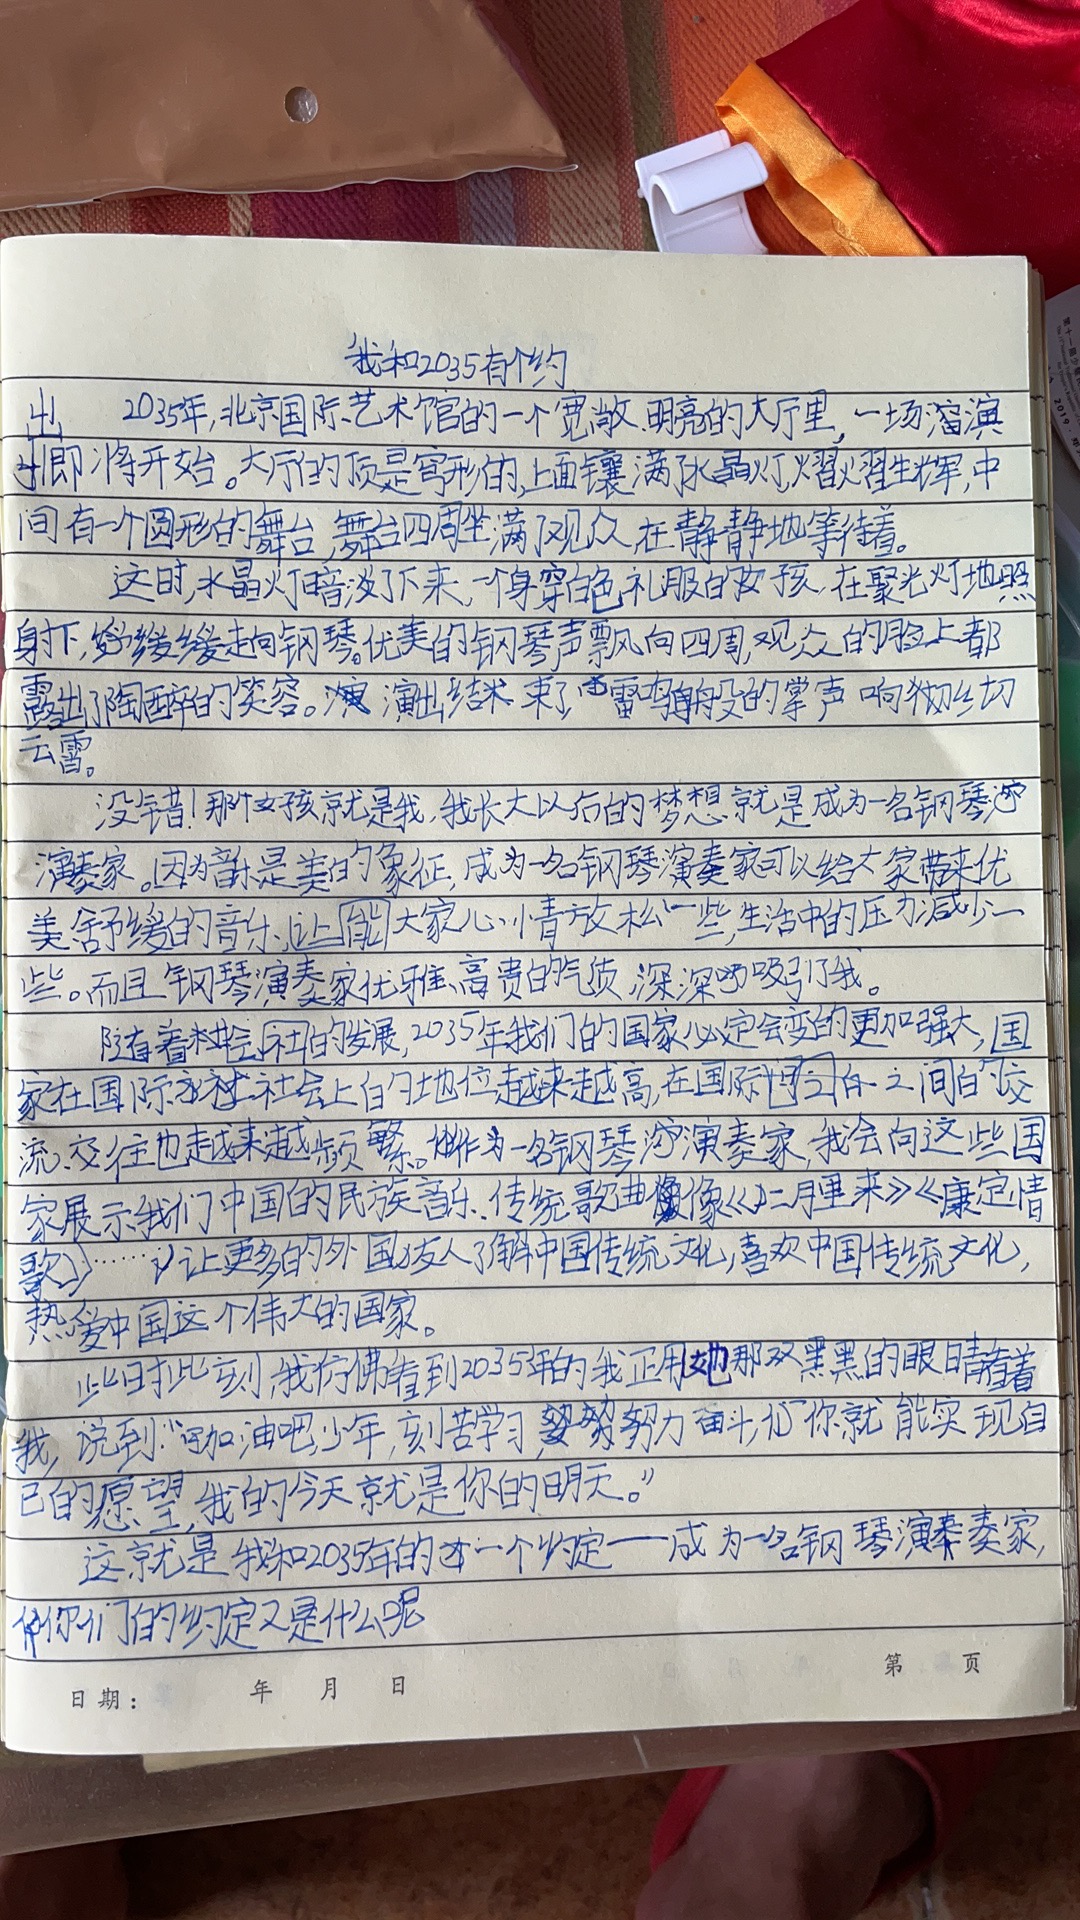 我和2035有个约
2035年,北京国际艺术馆的一个宽敞、明亮的大厅里,一场演
出即将开始。大厅的顶是穹形的,上面镶满了水晶灯,熠熠生辉,中
间有一个圆形的舞台,舞台四周坐满了观众在静静地等待着。
这时,水晶灯暗淡了下来,一个身穿白色礼服的女孩,在聚光灯地照
射下,缓缓走向钢琴。优美的钢琴声飘向四周,观众的脸上都
露出了陶醉的笑容。演出结束了,雷鸣般的掌声响彻
云霄。
没错!那个女孩就是我,我长大以后的梦想就是成为一名钢琴
演奏家。因为音乐是美的象征,成为一名钢琴演奏家可以给大家带来优
美、舒缓的音乐,让大家心情放松一些,生活中的压力减少一
些。而且钢琴演奏家优雅、高贵的气质深深吸引了我。
随着社会的发展,2035年我们的国家必定会变的更加强大,国
家在国际社会上的地位越来越高,在国际之间的交
流、交往也越来越频繁。作为一名钢琴演奏家,我会向这些国
家展示我们中国的民族音乐、传统歌曲像《二月里来》《康定情
歌》……让更多的外国友人了解中国传统文化,喜欢中国传统文化,
热爱中国这个伟大的国家。
此时此刻,我仿佛看到2035年的我正用她那双黑黑的眼睛看着
我,说到:“加油吧,少年,刻苦学习,努力奋斗,你就能实现自
己的愿望,我的今天就是你的明天。”
这就是我和2035年的一个约定——成为一名钢琴演奏家,
你们的约定又是什么呢
日期: 年 月 日 第 页
2019